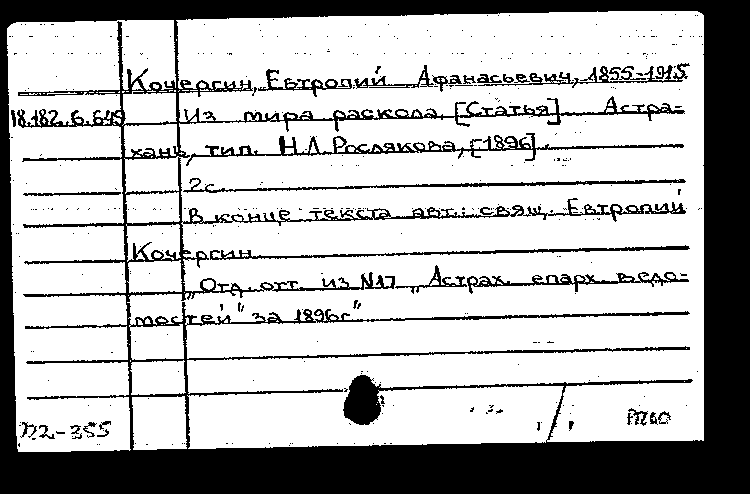 Кочергин, Евтропий Афанасьевич, 1855-1915
18.182.6.649 Из мира раскола. [Статья]. Астра-
хань, тип. Н.Л. Рослякова, [1896].
2с.
В конце текста авт.: свящ. Евтропий
Кочергин
„Отд. отт. из N17 „Астрах. епарх. ведо-
мостей" за 1896г"
-355